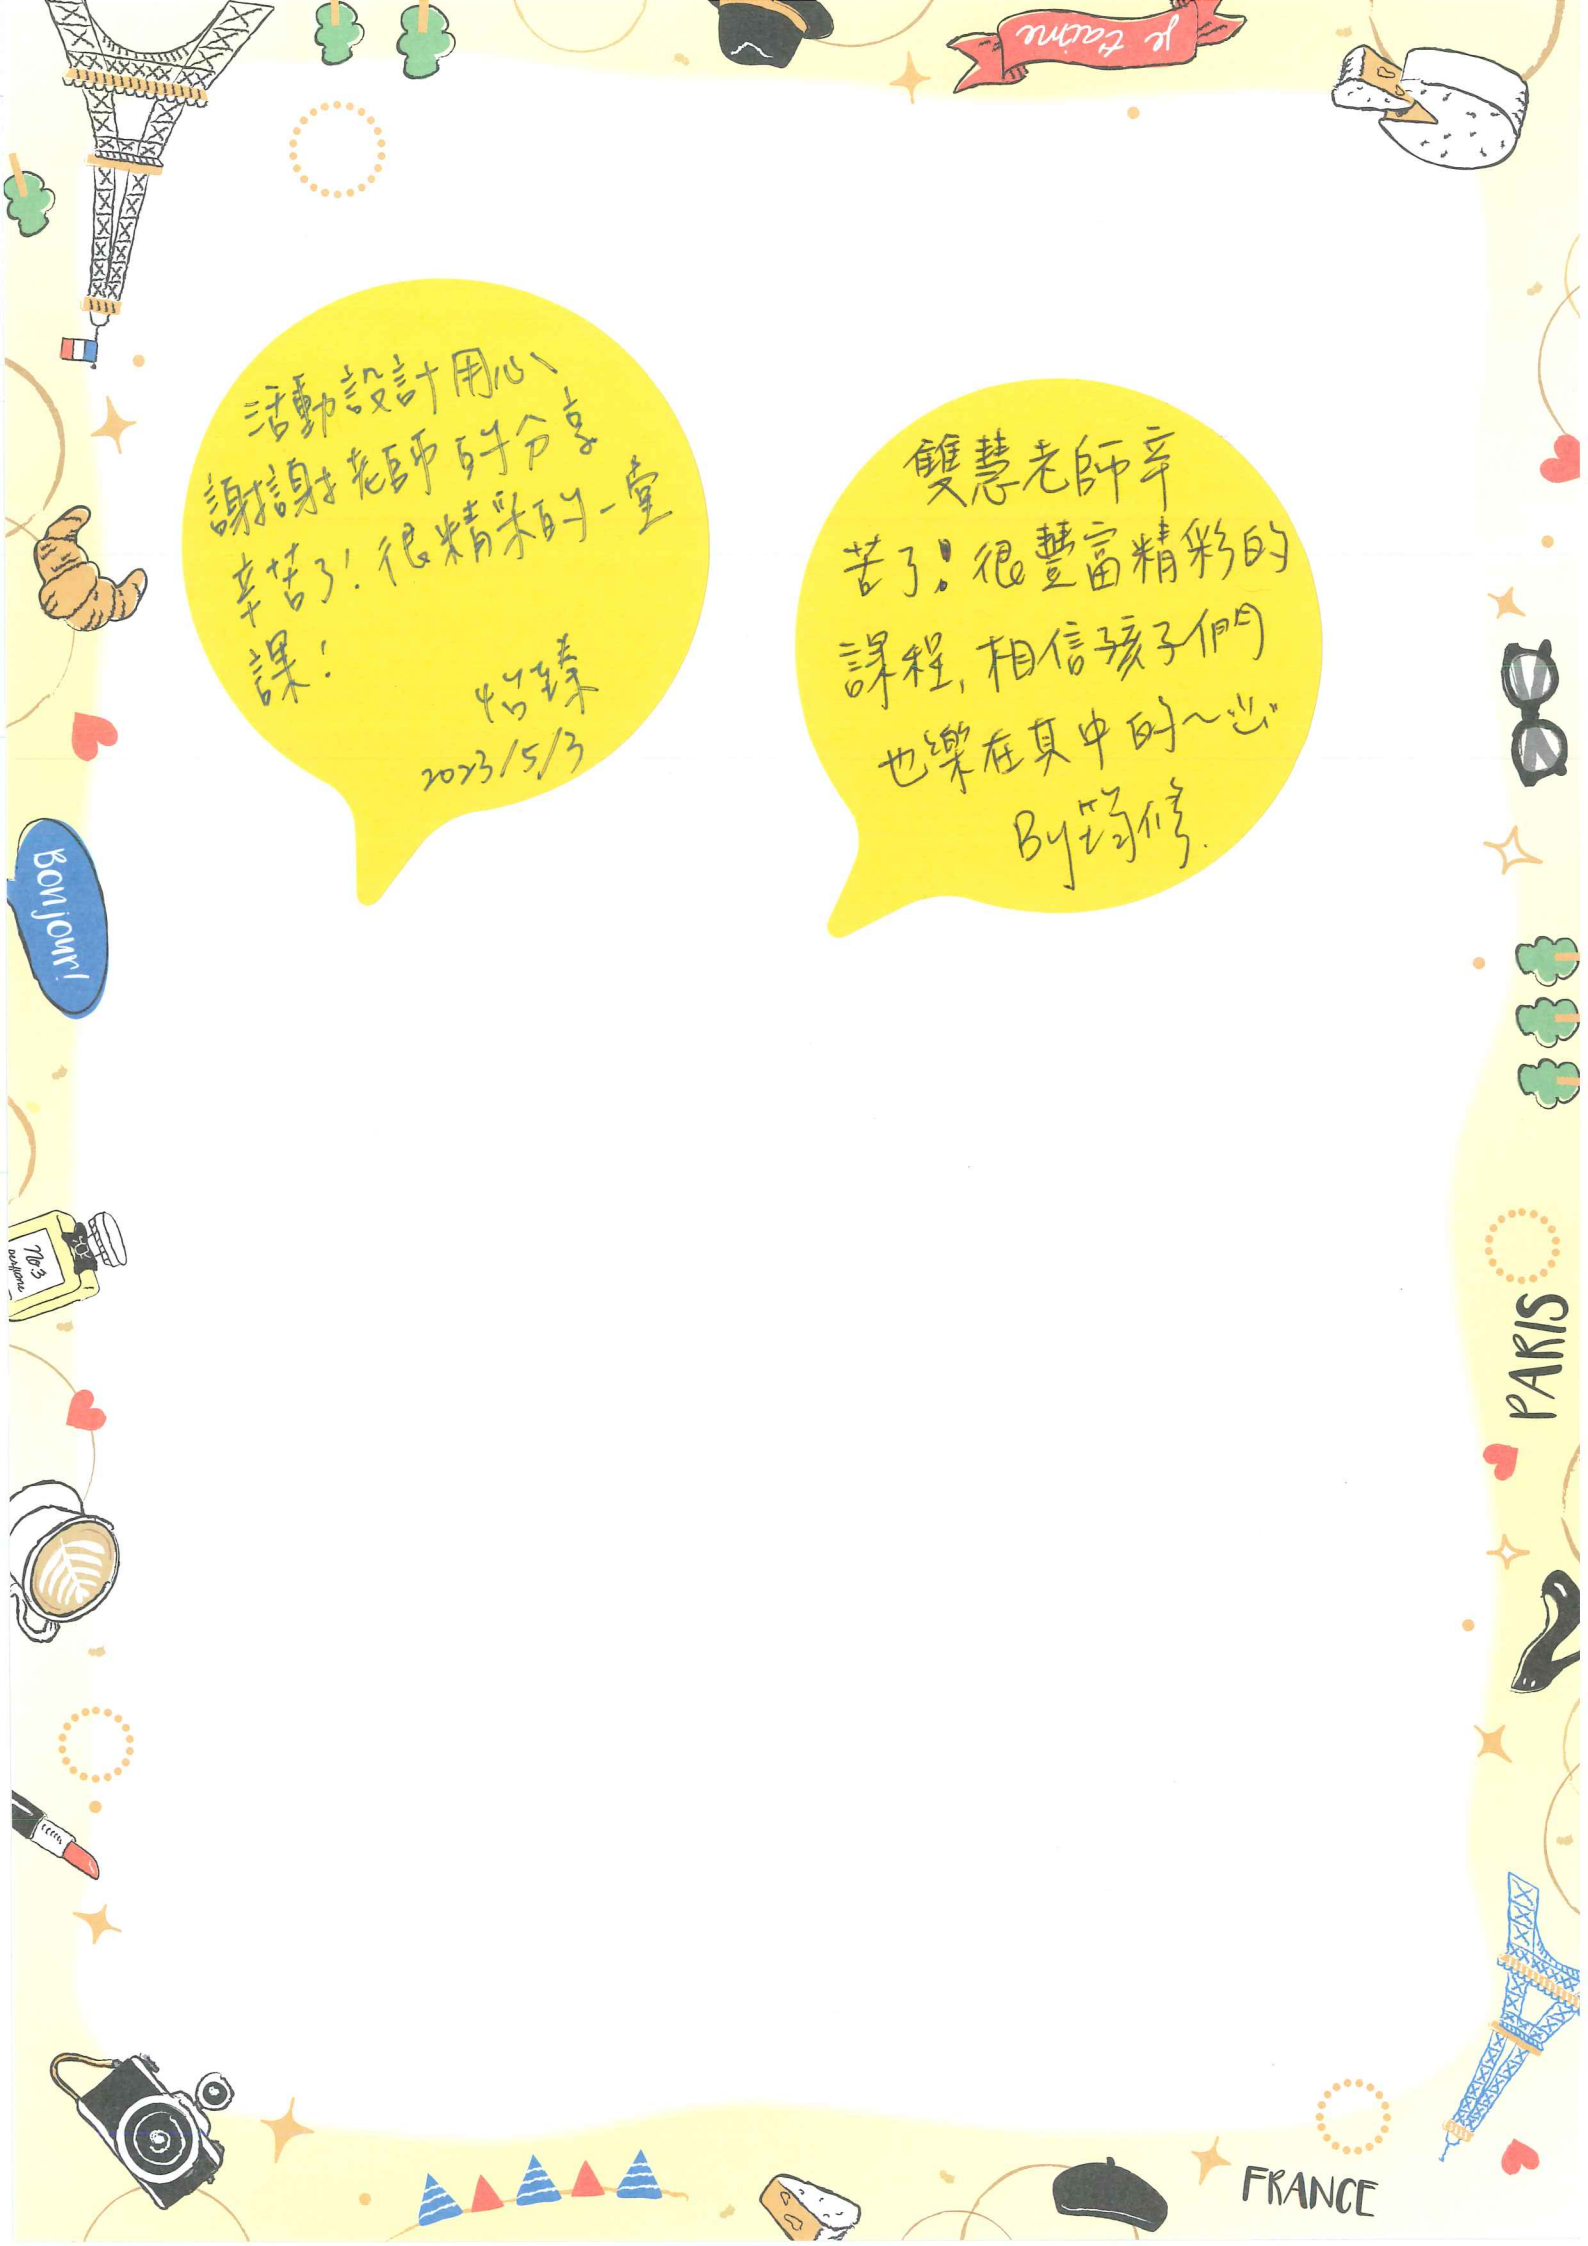 je t'aime
活動設計用心、
謝謝老師的分享
辛苦了!很精采的一堂
課!
怡臻
2023/5/3
雙慧老師辛
苦了!很豐富精彩的
課程,相信孩子們
也樂在其中的~
By 筠修.
Bonjour!
No.3
PARIS
FRANCE